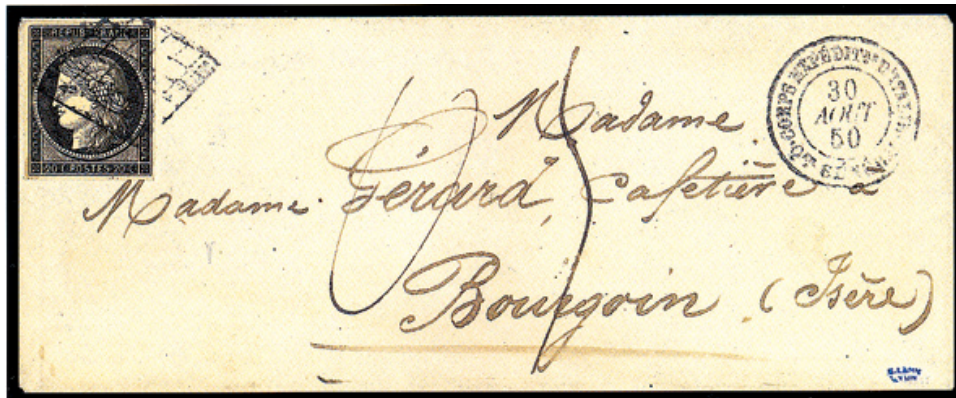 REPUB FRANC
20 c POSTES 20 c
CORPS EXPÉDITRE D'ITALIE
30
AOUT
50
Madame
Madame Gérard, Cafetière à
Bourgoin (Isère)
LYON